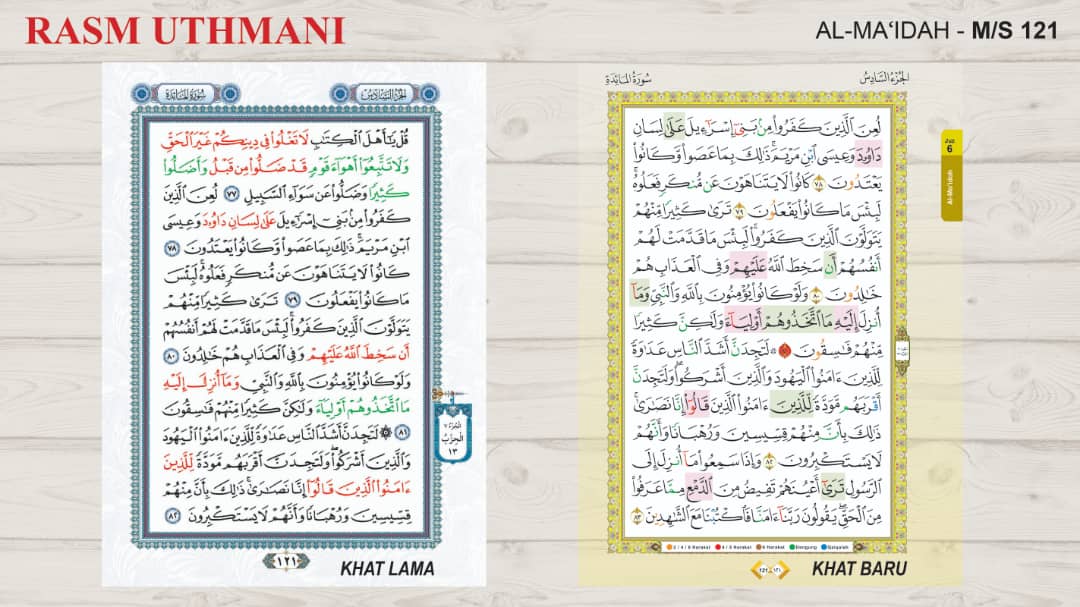 RASM UTHMANI
AL-MA‘IDAH - M/S 121
سُورَةُ المَائِدَة
الجُزءُ السَّادِس
قُلْ يَٰٓأَهْلَ ٱلْكِتَٰبِ لَا تَغْلُوا۟ فِى دِينِكُمْ غَيْرَ ٱلْحَقِّ
وَلَا تَتَّبِعُوٓا۟ أَهْوَآءَ قَوْمٍ قَدْ ضَلُّوا۟ مِن قَبْلُ وَأَضَلُّوا۟
كَثِيرًا وَضَلُّوا۟ عَن سَوَآءِ ٱلسَّبِيلِ ٧٧ لُعِنَ ٱلَّذِينَ
كَفَرُوا۟ مِنۢ بَنِىٓ إِسْرَٰٓءِيلَ عَلَىٰ لِسَانِ دَاوُۥدَ وَعِيسَى
ٱبْنِ مَرْيَمَ ۚ ذَٰلِكَ بِمَا عَصَوا۟ وَّكَانُوا۟ يَعْتَدُونَ ٧٨
كَانُوا۟ لَا يَتَنَاهَوْنَ عَن مُّنكَرٍ فَعَلُوهُ ۚ لَبِئْسَ
مَا كَانُوا۟ يَفْعَلُونَ ٧٩ تَرَىٰ كَثِيرًا مِّنْهُمْ
يَتَوَلَّوْنَ ٱلَّذِينَ كَفَرُوا۟ ۚ لَبِئْسَ مَا قَدَّمَتْ لَهُمْ أَنفُسُهُمْ
أَن سَخِطَ ٱللَّهُ عَلَيْهِمْ وَفِى ٱلْعَذَابِ هُمْ خَٰلِدُونَ ٨٠
وَلَوْ كَانُوا۟ يُؤْمِنُونَ بِٱللَّهِ وَٱلنَّبِىِّ وَمَآ أُنزِلَ إِلَيْهِ
مَا ٱتَّخَذُوهُمْ أَوْلِيَآءَ وَلَٰكِنَّ كَثِيرًا مِّنْهُمْ فَٰسِقُونَ
٨١ ۞ لَتَجِدَنَّ أَشَدَّ ٱلنَّاسِ عَدَٰوَةً لِّلَّذِينَ ءَامَنُوا۟ ٱلْيَهُودَ
وَٱلَّذِينَ أَشْرَكُوا۟ ۖ وَلَتَجِدَنَّ أَقْرَبَهُم مَّوَدَّةً لِّلَّذِينَ
ءَامَنُوا۟ ٱلَّذِينَ قَالُوٓا۟ إِنَّا نَصَٰرَىٰ ۚ ذَٰلِكَ بِأَنَّ مِنْهُمْ
قِسِّيسِينَ وَرُهْبَانًا وَأَنَّهُمْ لَا يَسْتَكْبِرُونَ ٨٢
الجُزء ٦
الحِزْب
١٣
١٢١
KHAT LAMA
سُورَةُ المَائِدَة
الجُزءُ السَّادِسُ
لُعِنَ ٱلَّذِينَ كَفَرُوا۟ مِنۢ بَنِىٓ إِسْرَٰٓءِيلَ عَلَىٰ لِسَانِ
دَاوُۥدَ وَعِيسَى ٱبْنِ مَرْيَمَ ۚ ذَٰلِكَ بِمَا عَصَوا۟ وَّكَانُوا۟
يَعْتَدُونَ ٧٨ كَانُوا۟ لَا يَتَنَاهَوْنَ عَن مُّنكَرٍ فَعَلُوهُ ۚ
لَبِئْسَ مَا كَانُوا۟ يَفْعَلُونَ ٧٩ تَرَىٰ كَثِيرًا مِّنْهُمْ
يَتَوَلَّوْنَ ٱلَّذِينَ كَفَرُوا۟ ۚ لَبِئْسَ مَا قَدَّمَتْ لَهُمْ
أَنفُسُهُمْ أَن سَخِطَ ٱللَّهُ عَلَيْهِمْ وَفِى ٱلْعَذَابِ هُمْ
خَٰلِدُونَ ٨٠ وَلَوْ كَانُوا۟ يُؤْمِنُونَ بِٱللَّهِ وَٱلنَّبِىِّ وَمَآ
أُنزِلَ إِلَيْهِ مَا ٱتَّخَذُوهُمْ أَوْلِيَآءَ وَلَٰكِنَّ كَثِيرًا
مِّنْهُمْ فَٰسِقُونَ ٨١ ۞ لَتَجِدَنَّ أَشَدَّ ٱلنَّاسِ عَدَٰوَةً
لِّلَّذِينَ ءَامَنُوا۟ ٱلْيَهُودَ وَٱلَّذِينَ أَشْرَكُوا۟ ۖ وَلَتَجِدَنَّ
أَقْرَبَهُم مَّوَدَّةً لِّلَّذِينَ ءَامَنُوا۟ ٱلَّذِينَ قَالُوٓا۟ إِنَّا نَصَٰرَىٰ ۚ
ذَٰلِكَ بِأَنَّ مِنْهُمْ قِسِّيسِينَ وَرُهْبَانًا وَأَنَّهُمْ
لَا يَسْتَكْبِرُونَ ٨٢ وَإِذَا سَمِعُوا۟ مَآ أُنزِلَ إِلَى
ٱلرَّسُولِ تَرَىٰٓ أَعْيُنَهُمْ تَفِيضُ مِنَ ٱلدَّمْعِ مِمَّا عَرَفُوا۟
مِنَ ٱلْحَقِّ ۖ يَقُولُونَ رَبَّنَآ ءَامَنَّا فَٱكْتُبْنَا مَعَ ٱلشَّٰهِدِينَ ٨٣
Juz
6
Al-Ma'idah
2 / 4 / 6 Harakat 4 / 5 Harakat 6 Harakat Dengung Qalqalah
121 ١٢١
KHAT BARU